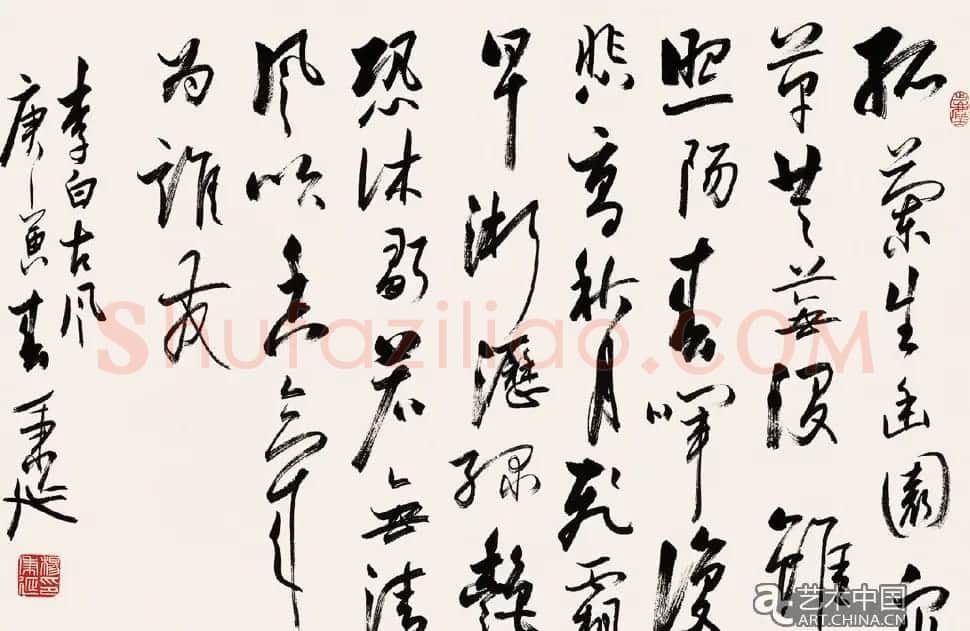 孤蘭生幽園眾
草共蕪没雖
照陽春暉復
悲高秋月飛霜
早淅瀝緑艷
恐休歇若無清
風吹香氣
为誰发
李白古風
庚寅春 秉延
Shufaziliao.COM
艺术中国
ART.CHINA.CN